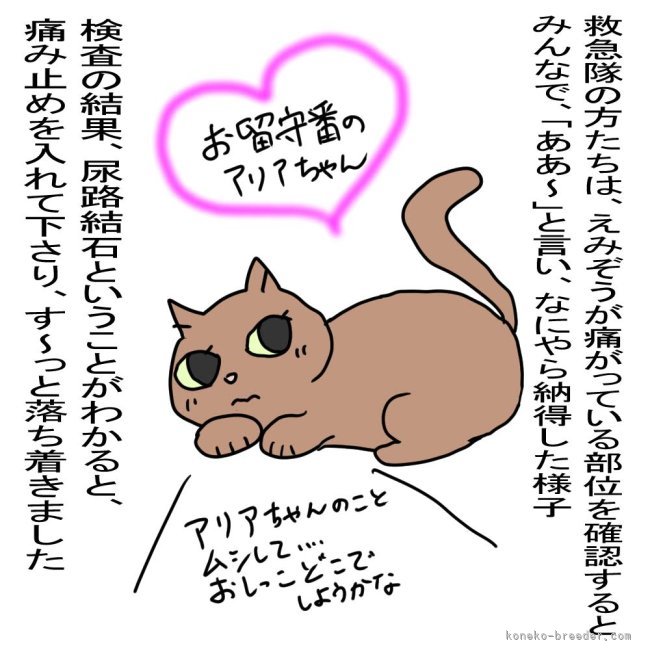 救急隊の方たちは、えみぞうが痛がっている部位を確認すると
みんなで、「ああ～」と言い、なにやら納得した様子
お留守番の
アリアちゃん
アリアちゃんのこと
ムシして....
おしっこどこで
しようかな
検査の結果、尿路結石ということがわかると、
痛み止めを入れて下さり、す～っと落ち着きました
koneko-breeder.com